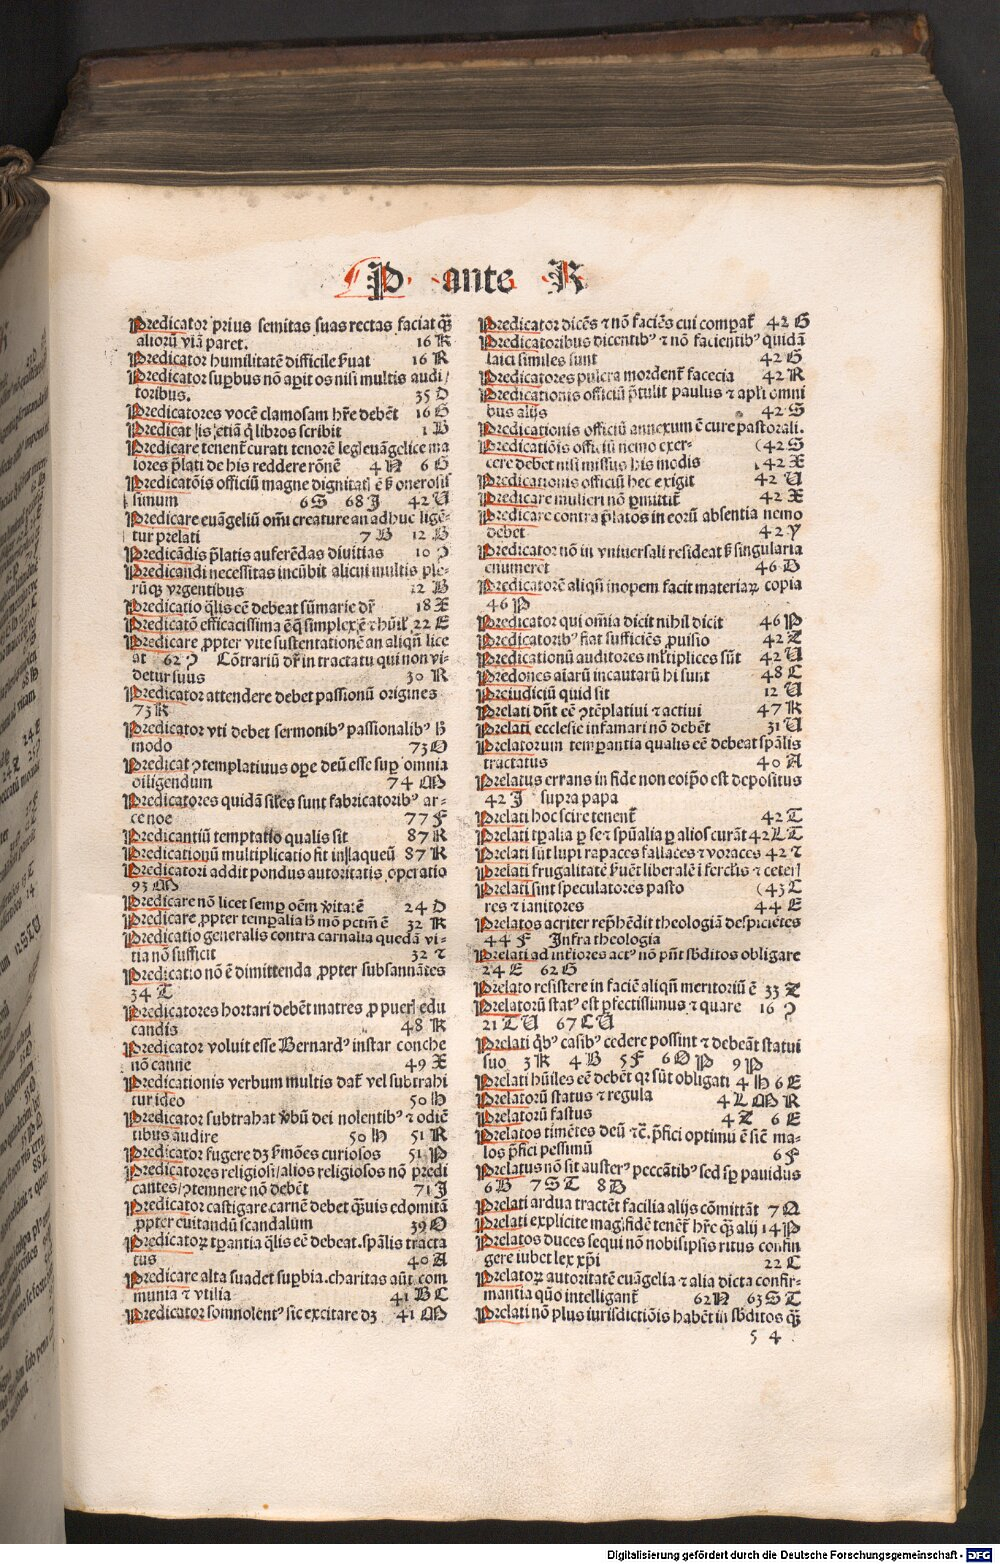 P ante R
Predicator prius semitas suas rectas faciat q̄
aliorū viā paret. 16 K
Predicator humilitatē difficile ẜuat 16 R
Predicator suꝑbus nō aꝑit os nisi multis audi/
toribus. 35 D
Predicatores vocē clamosam hr̄e debēt 16 G
Predicat is etiā q̇ libros scribit 1 B
Predicare tenent᷑ curati tenorē leg euāgelice ma
iores p̄lati de his reddere rōnē 4 N 6 G
Predicatōis officiū magne dignitatis ē ẜ onerosis
simum 6 S 68 I 42 U
Predicare euāgeliū om̄i creature an adhuc ligē-
tur prelati 7 B 12 B
Predicādis p̄latis auferēdas diuitias 10 ꝰ
Predicandi necessitas incūbit alicui multis ple-
rūq̄ vrgentibus 12 B
Predicatio q̄lis eē debeat sūmarie dr̄ 18 X
Predicatō efficacissima ē q̄ simplex ē ⁊ hūil᷑ 22 E
Predicare ꝓpter vite sustentationē an aliqn̄ lice
at 62 ꝰ Cōtrariū dr̄ in tractatu qui non vi-
detur suus 30 R
Predicator attendere debet passionū origines
73 K
Predicator vti debet sermonibꝰ passionalibꝰ ħ
modo 73 O
Predicat ꝯtemplatiuus oꝑe deū esse suꝑ omnia
diligendum 74 M
Predicatores quidā siles sunt fabricatoribꝰ ar-
ce noe 77 F
Predicantiū temptatio qualis sit 87 R
Predicationū multiplicatio fit in laqueū 87 R
Predicatori addit pondus autoritatis operatio
93 M
Predicare nō licet semꝑ oēm v̄itatē 24 D
Predicare ꝓpter temꝑalia ħ mō pctm̄ ē 32 K
Predicatio generalis contra carnalia quedā vi-
tia nō sufficit 32 ⁊
Predicatio nō ē dimittenda ꝓpter subsannātes
34 T
Predicatores hortari debēt matres ꝓ pueris edu
candis 48 K
Predicator voluit esse Bernardꝰ instar conche
nō canne 49 X
Predicationis verbum multis dat᷑ vel subtrahi
tur ideo 50 H
Predicator subtrahat v̄bū dei nolentibꝰ ⁊ odiē
tibus audire 50 H 51 R
Predicator fugere dꝫ ẜmōes curiosos 51 P
Predicatores religiosi/alios religiosos nō predi
cantes/ꝯtemnere nō debēt 71 I
Predicator castigare carnē debet q̄uis edomitā
ꝓpter euitandū scandalum 39 O
Predicatorꝝ tꝑantia q̄lis eē debeat.spālis tracta
tus 40 A
Predicare alta suadet suꝑbia.charitas aūt com
munia ⁊ vtilia 41 B C
Predicator somnolentꝰ sic excitare dꝫ 41 M
Predicator dicēs ⁊ nō faciēs cui comꝑat᷑ 42 G
Predicatoribus dicentibꝰ ⁊ nō facientibꝰ quidā
laici similes sunt 42 G
Predicatores pulcra mordent᷑ facecia 42 R
Predicationis officiū p̄tulit paulus ⁊ apl̄i omni
bus alijs 42 S
Predicationis officiū annexum ē cure pastorali.
Predicatiōis officiū nemo exer- (42 S
cere debet nisi missus his modis 42 X
Predicationis officiū hec exigit 42 U
Predicare mulieri nō ꝑmittit᷑ 42 X
Predicare contra p̄latos in eorū absentia nemo
debet 42 Y
Predicator nō in vniuersali resideat ẜ singularia
enumeret 46 D
Predicatorē aliqn̄ inopem facit materiaꝝ copia
46 P
Predicator qui om̄ia dicit nihil dicit 46 P
Predicatoribꝰ fiat sufficiēs ꝓuisio 42 Z
Predicationū auditores ml̄tiplices sūt 42 U
Predones aīarū incautarū hi sunt 48 C
Preiudiciū quid sit 12 U
Prelati dn̄t eē ꝯtēplatiui ⁊ actiui 47 K
Prelati ecclesie infamari nō debēt 31 U
Prelatorum temꝑantia qualis eē debeat spālis
tractatus 40 A
Prelatus errans in fide non eoip̄o est depositus
42 I supra papa
Prelati hoc scire tenent᷑ 42 T
Prelati tꝑalia ꝑ se ⁊ spūalia ꝑ alios curāt 42 L T
Prelati sūt lupi rapaces fallaces ⁊ voraces 42 ⁊
Prelati frugalitatē ẜuēt liberalē i ferclis ⁊ ceteris
Prelati sint speculatores pasto (43 C
res ⁊ ianitores 44 E
Prelatos acriter rep̄hēdit theologiā despiciētes
44 F Infra theologia
Prelati ad int̓iores actꝰ nō pn̄t sb̄ditos obligare
24 E 62 G
Prelato resistere in faciē aliqn̄ meritoriū ē 33 Z
Prelatorū statꝰ est ꝑfectissimus ⁊ quare 16 ꝰ
21 T U 67 C U
Prelati q̇bꝰ casibꝰ cedere possint ⁊ debeāt statui
suo 3 K 4 B 5 F 6 O P 9 P
Prelati hūiles eē debēt qr sūt obligati 4 H 6 E
Prelatorū status ⁊ regula 4 L M R
Prelatorū fastus 4 Z 6 E
Prelatos timētes deū ⁊c̄.p̄fici optimū ē sic̄ ma-
los p̄fici pessimū 6 F
Prelatus nō sit austerꝰ peccātibꝰ sed sꝑ pauidus
6 B 7 S T 8 B
Prelati ardua tractēt facilia alijs cōmittāt 7 Q
Prelati explicite mag fidē tenēt᷑ hr̄e q̄ alij 14 P
Prelatos duces sequi nō nobisip̄sis ritus confin
gere iubet lex xp̄i 22 C
Prelatoꝝ autoritatē euāgelia ⁊ alia dicta confir-
mantia quō intelligant᷑ 62 N 63 S T
Prelati nō plus iurisdictiōis habēt in sb̄ditos q̄
5 4
Digitalisierung gefördert durch die Deutsche Forschungsgemeinschaft - DFG